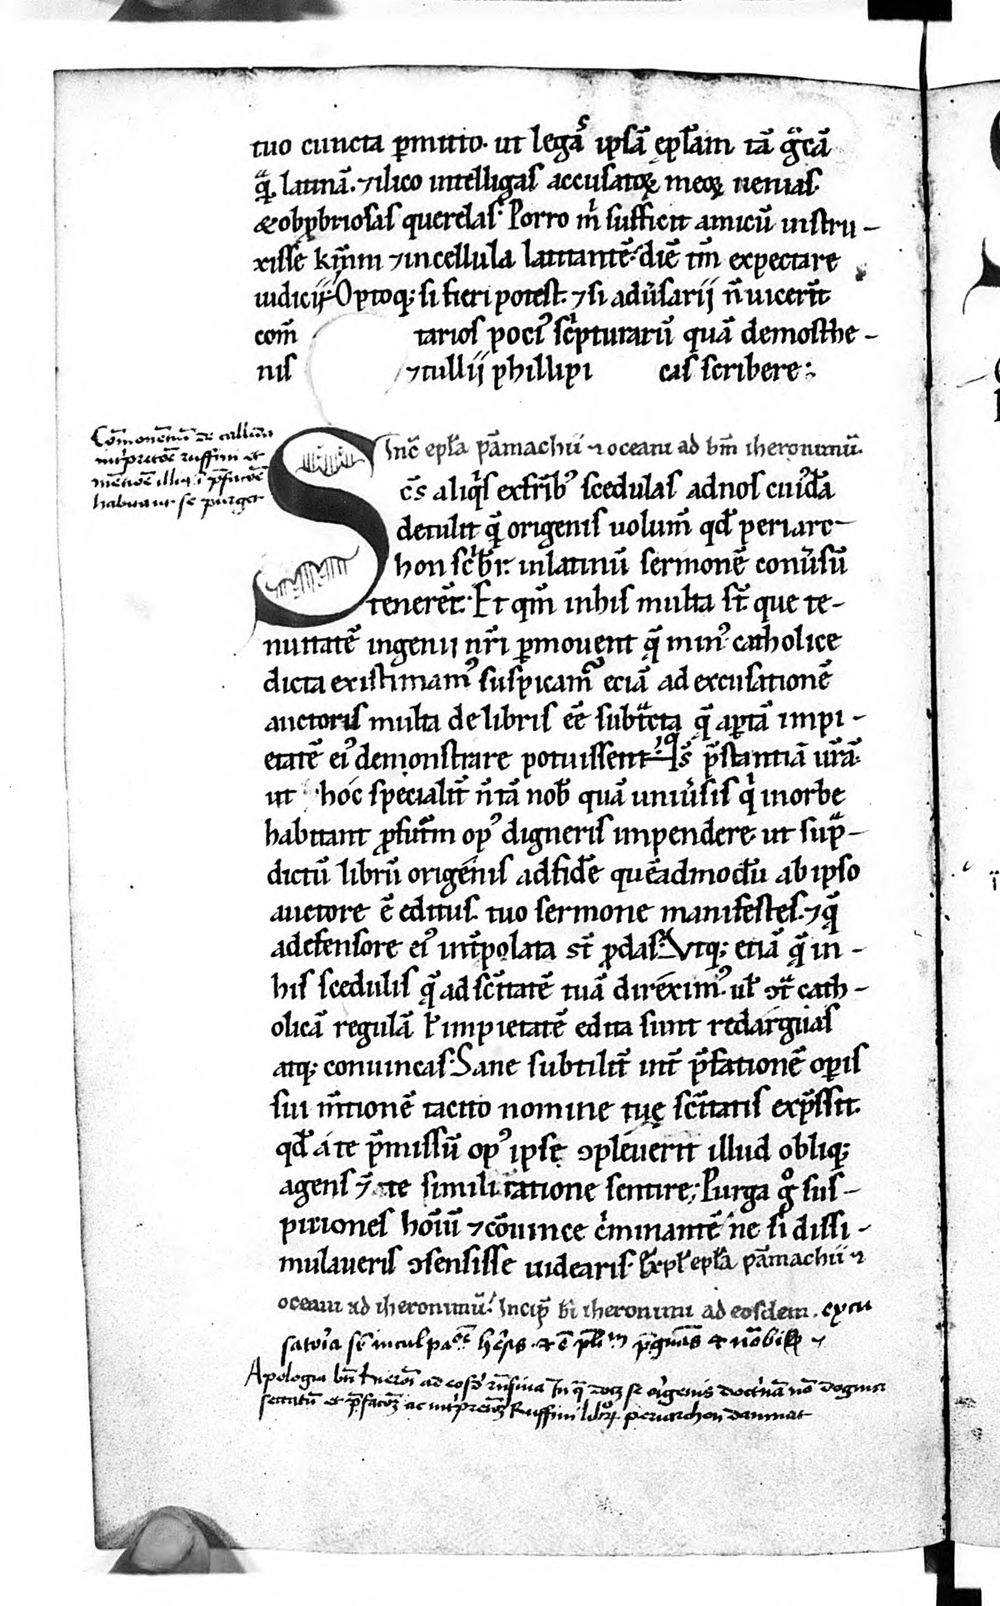 tuo cuncta ꝑmitto. ut legaſ̄ ip̄ſā ep̄ſam tā gͣcā
qͣ̄. latinā. ⁊ ilico intelligaſ accuſatoꝝ meoꝝ neniaſ.
& obꝓbrioſaſ querelaſ. Porro m̄ ſufficit amicū inſtru-
xiſſe kr̄mm ⁊ incellula latitantē. diē tm̄ expectare
iudicij. Optoq; ſi fieri poteſt. ⁊ ſi aduſ̄arij n̄ uicerīt
com̄tarioſ pociꝰ ſcͥpturarū quā demoſthe-
niſ ⁊ tullij phillipicaſ ſcribere:
Cōmonētur
ruffini et
habitant. ſe purget
Inc̄ ep̄ła pāmachii ⁊ oceani ad bm̄ iheronimū.
Sc̄ſ aliq̄ſ exfrībꝰ ſcedulaſ adnoſ cuiꝰdā
detulit q̄ origeniſ uolum̄ qd̄ periarc-
hon ſcͥbr̄. inlatinū ſermonē conuſ̄ū
tenerēt. Et qm̄ inhiſ multa ſt̄ que te-
nuitatē ingenij nr̄i ꝑmouent q̄ minꝰ catholice
dicta exiſtimamꝰ ſuſpicamꝰ eciā ad excuſationē
auctoriſ multa de libriſ eē ſubtͣcta q̄ aꝑtā impi-
etatē eiꝰ demonſtrare potuiſſent. Qͦſ p̄ſtantiā ur̄ā.
ut hoc ſpecialit̄ n̄ tā nob̄ quā uniuſ̄iſ qͥ inorbe
habitant ꝓfutm̄ opꝰ digneriſ impendere ut ſupͣ-
dictū librū origeniſ adfidē quēadmodū ab ipſo
auctore ē edituſ. tuo ſermone manifeſteſ. ⁊ q̄
adefenſore eiꝰ int̄polata ſt̄ ꝓdaſ. Utq; etiā q̄ in-
hiſ ſceduliſ q̄ ad ſc̄itatē tuā direximꝰ. ul̄ ↄtͣ cath-
olicā regulā ł impietatē edita ſunt redarguaſ
atq; conuincaſ. Sane ſubtilit̄ int̄ p̄fationē oꝑiſ
ſui m̄tionē tacito nomine tuę ſc̄itatiſ exp̄ſſit.
qd̄ a te p̄miſſū opꝰ ipſe ↄpleuerit illud obliq;
agenſ ⁊ te ſimili ratione ſentire; Purga gͦ ſuſ-
picioneſ hōiū ⁊ cōuince cͥminantē ne ſi diſſi-
mulaueriſ ↄſenſiſſe uideariſ. Expł ep̄ła pāmachii ⁊
oceani ad iheronimū. Incip̄ b̄i iheronimi ad eoſdem. excu
ſatoria
Apologia ſe origenis doctrinā nō dogma
ſectatū et ac Ruffini periarchon damnat